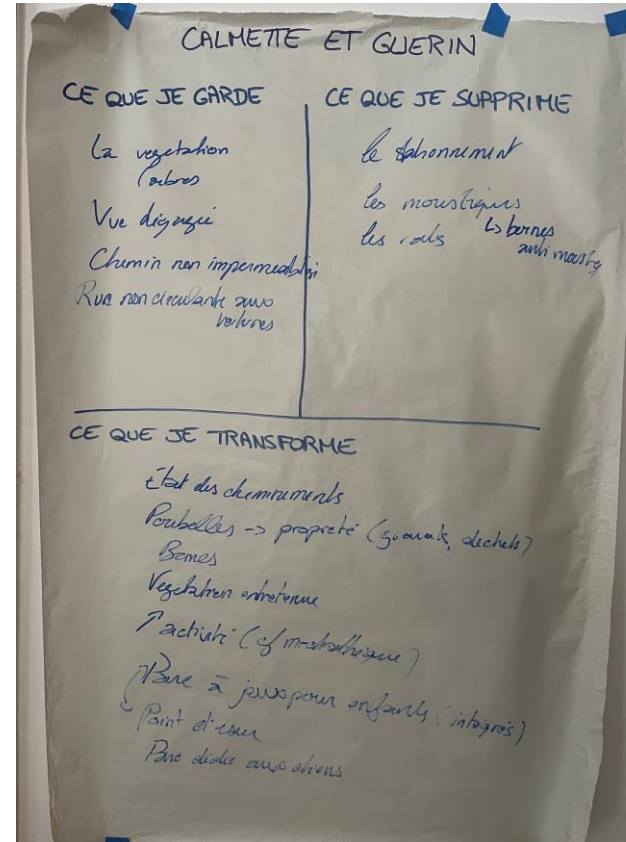 CALMETTE ET GUERIN
CE QUE JE GARDE
La vegetation
(arbres
Vue dégagée
Chemin non imperméabilisé
Rue non circulante aux
voitures
CE QUE JE SUPPRIME
le stationnement
les moustiques
↳ bornes
anti moustiq
les rats
CE QUE JE TRANSFORME
État des cheminements
Poubelles -> propreté (goelands, dechets)
Bancs
Vegetation entretenue
↑ activité (cf médiathèque)
Parc à jeux pour enfants (intégrés)
Point d'eau
Parc dédié aux chiens